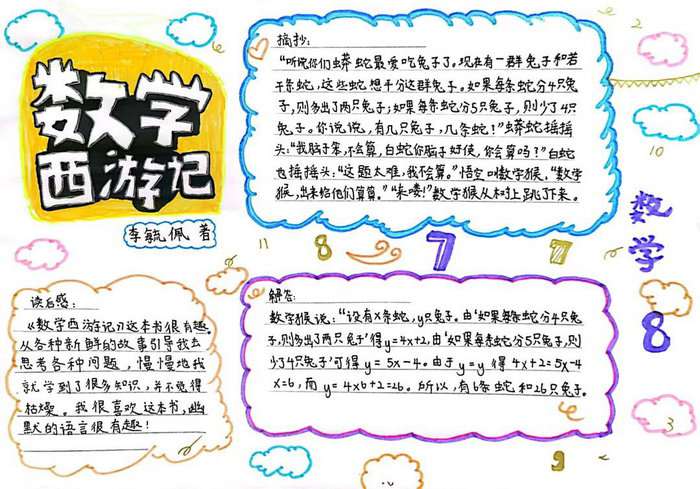 数学
西游记
李毓佩 著
摘抄:
“听说你们蟒蛇最爱吃兔子了,现在有一群兔子和若
干条蛇,这些蛇想平分这群兔子。如果每条蛇分4只兔
子,则多出了两只兔子;如果每条蛇分5只兔子,则少了4只
兔子。你说说,有几只兔子,几条蛇!”蟒蛇摇摇
头:“我脑子笨,不会算,白蛇你脑子好使,你会算吗?”白蛇
也摇摇头:“这题太难,我不会算。”悟空叫数学猴,“数学
猴,出来给他们算算。”“来喽!”数学猴从树上跳了下来。
2
10
数
学
8
11
8
7
7
读后感:
《数学西游记》这本书很有趣。
从各种新鲜的故事引导我去
思考各种问题,慢慢地我
就学到了很多知识,并不觉得
枯燥。我很喜欢这本书,幽
默的语言很有趣!
解答:
数学猴说:“设有x条蛇,y只兔子。由‘如果每条蛇分4只兔
子,则多出了两只兔子’得y=4x+2,由‘如果每条蛇分5只兔子,则
少了4只兔子’可得y=5x-4。由于y=y得4x+2=5x-4
x=6,而y=4x6+2=26。所以,有6条蛇和26只兔子。
3
9